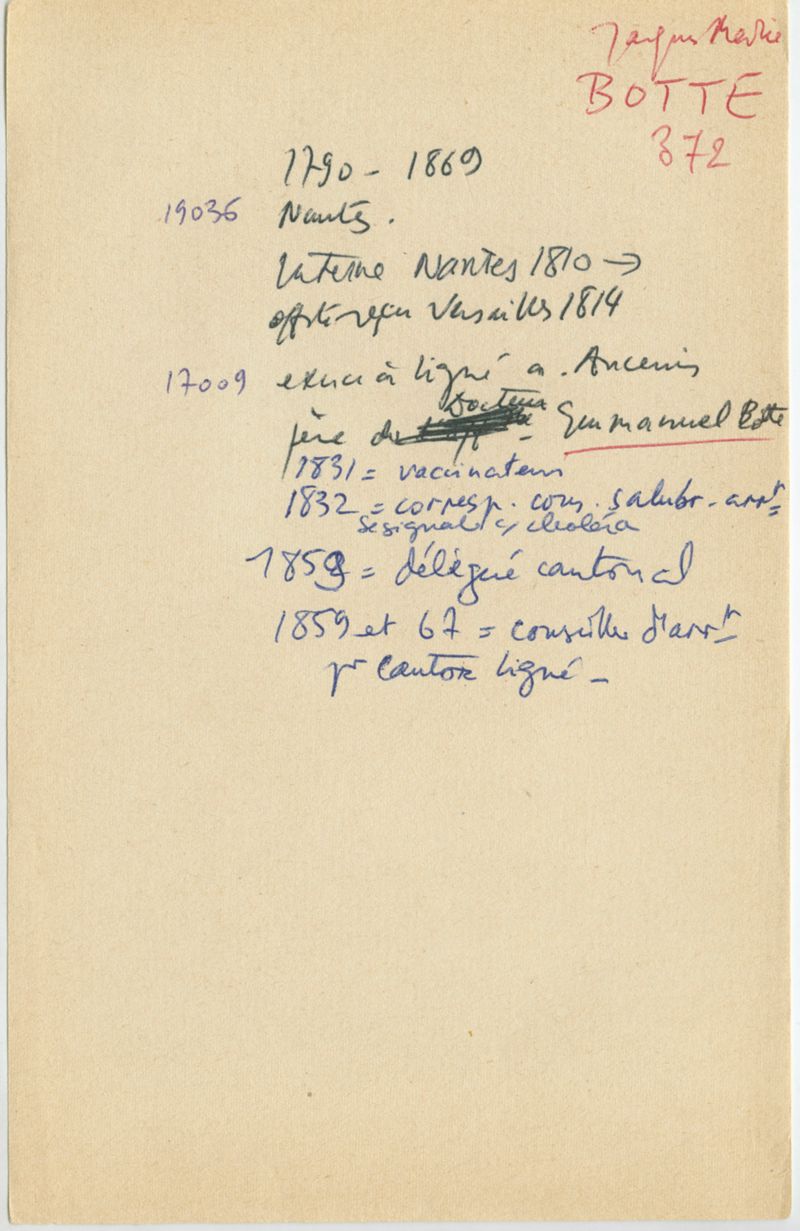 Jacques Marie
BOTTE
372
1790 - 1869
19036 Nantes.
Interne Nantes 1810 →
off. sté reçu Versailles 1814
17009 exerce à Ligné a. Ancenis
père du Docteur - Emmanuel Botte
1831 = vaccinateur
1832 = corresp. cons. salubr. arrt =
se signale c/ choléra
1859 = délégué cantonal
1859 et 67 = conseiller d'arrt
pr canton Ligné -